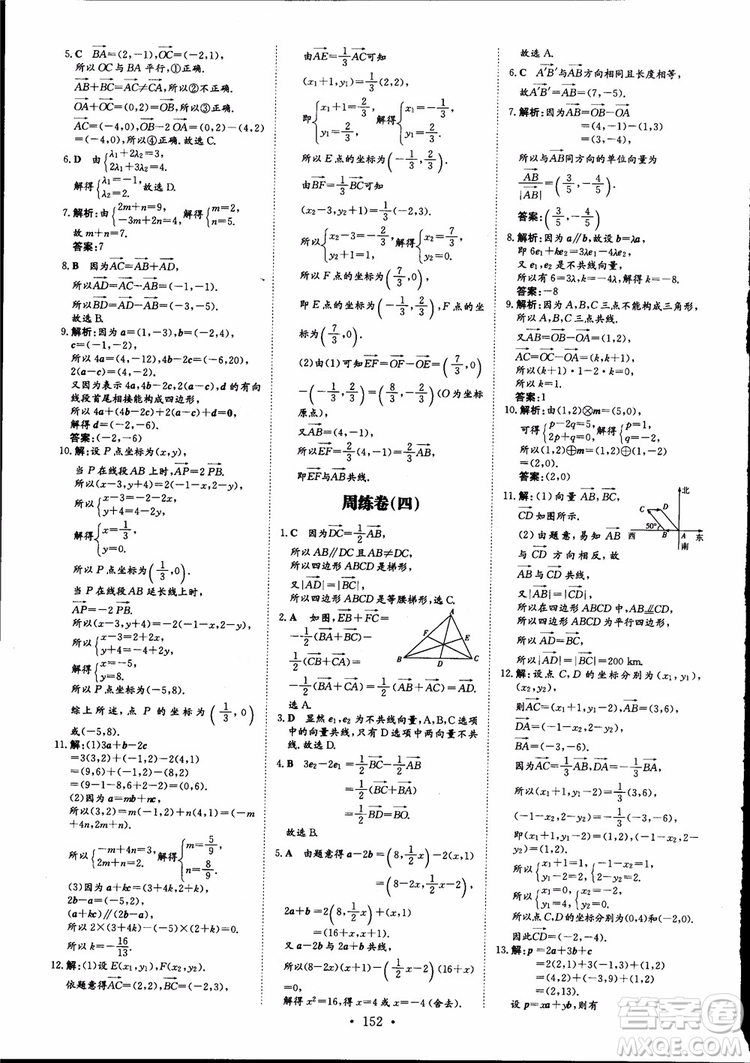 5. C  BA=(2,-1),OC=(-2,1),
所以 OC 与 BA 平行,①正确.
AB+BC=AC≠CA,所以②不正确.
OA+OC=(0,2)=OB,所以③正确.
AC=(-4,0),OB-2 OA=(0,2)-(4,2)
=(-4,0),所以④正确.故选 C.
6. D  由{λ1+2λ2=3, 2λ1+3λ2=4.
解得{λ1=-1, λ2=2. 故选 D.
7. 解析:由{2m+n=9, -3m+2n=4, 解得{m=2, n=5.
故 m+n=7.
答案:7
8. B  因为AC=AB+AD,
所以AD=AC-AB=(-1,-1).
所以BD=AD-AB=(-3,-5).
故选 B.
9. 解析:因为 a=(1,-3),b=(-2,4),
c=(-1,-2),
所以 4a=(4,-12),4b-2c=(-6,20),
2(a-c)=(4,-2).
又因为表示 4a,4b-2c,2(a-c),d 的有向
线段首尾相接能构成四边形,
所以 4a+(4b-2c)+2(a-c)+d=0,
解得 d=(-2,-6).
答案:(-2,-6)
10. 解:设 P 点坐标为(x,y),
当 P 在线段 AB 上时,AP=2 PB.
所以(x-3,y+4)=2(-1-x,2-y),
所以{x-3=-2-2x, y+4=4-2y,
解得{x=1/3, y=0.
所以 P 点坐标为(1/3,0).
当 P 在线段 AB 延长线上时,
AP=-2 PB.
所以(x-3,y+4)=-2(-1-x,2-y),
所以{x-3=2+2x, y+4=-4+2y,
解得{x=-5, y=8.
所以 P 点坐标为(-5,8).
综上所述,点 P 的坐标为(1/3,0)
或(-5,8).
11. 解:(1)3a+b-2c
=3(3,2)+(-1,2)-2(4,1)
=(9,6)+(-1,2)-(8,2)
=(9-1-8,6+2-2)=(0,6).
(2)因为 a=mb+nc,
所以(3,2)=m(-1,2)+n(4,1)=(-m+
4n,2m+n).
所以{-m+4n=3, 2m+n=2, 解得{m=5/9, n=8/9.
(3)因为 a+kc=(3+4k,2+k),
2b-a=(-5,2),
(a+kc)∥(2b-a),
所以 2×(3+4k)-(-5)×(2+k)=0,
所以 k=-16/13.
12. 解:(1)设 E(x1,y1),F(x2,y2),
依题意得AC=(2,2),BC=(-2,3).
由AE=1/3 AC可知
(x1+1,y1)=1/3(2,2),
即{x1+1=2/3, y1=2/3, 解得{x1=-1/3, y1=2/3,
所以 E 点的坐标为(-1/3,2/3).
由BF=1/3 BC可知
(x2-3,y2+1)=1/3(-2,3),
即{x2-3=-2/3, y2+1=1, 解得{x2=7/3, y2=0.
所以 F 点的坐标为(7/3,0).
即 E 点的坐标为(-1/3,2/3),F 点的坐标
为(7/3,0).
(2)由(1)可知EF=OF-OE=(7/3,0)
-(-1/3,2/3)=(8/3,-2/3)(O 为坐标
原点),
又AB=(4,-1),
所以EF=2/3(4,-1)=2/3 AB,
所以EF与AB共线.
周练卷(四)
1. C  因为DC=1/2 AB,
所以 AB∥DC,且 DC≠AB,
所以四边形 ABCD 是梯形,
又因为|AD|=|BC|,
所以四边形 ABCD 是等腰梯形,选 C.
2. A  如图,EB+FC=
-1/2(BA+BC)-
1/2(CB+CA)=
-1/2(BA+CA)=1/2(AB+AC)=AD.
选 A.
A
B
D
C
3. D  显然 e1,e2 为不共线向量,A,B,C 选项
中的向量共线,只有 D 选项中两个向量不共
线,故选 D.
4. B  3e2-2e1=1/2(AD-AB)
=1/2(BC+BA)
=1/2 BD=BO.
故选 B.
5. A  由题意得 a-2b=(8,1/2 x)-2(x,1)
=(8-2x,1/2 x-2),
2a+b=2(8,1/2 x)+(x,1)
=(16+x,x+1).
又 a-2b 与 2a+b 共线,
所以(8-2x)(x+1)=(1/2 x-2)(16+x),
解得 x=4 或 x=-4(舍去).
故选 A.
6. C  A′B′与AB方向相同且长度相等,
故A′B′=AB=(7,-5).
7. 解析:因为AB=OB-OA
=(4,-1)-(1,3)
=(3,-4),
所以与AB同方向的单位向量为
AB/|AB|=(3/5,-4/5).
答案:(3/5,-4/5)
8. 解析:因为 a∥b,所以 b=λa,
即 6e1+ke2=λ(3e1-4e2),
又 e1,e2 是不共线向量,
所以有 6=3λ,k=-4λ,解得 k=-8.
答案:-8
9. 解析:因为 A,B,C 三点不能构成三角形,
所以 A,B,C 三点共线.
因为AB=OB-OA=(1,2),
AC=OC-OA=(k,k+1),
所以(k+1)·1-2·k=0,
所以 k=1.
答案:1
10. 解析:由(1,2)⊗m=(5,0),
可得{p-2q=5, 2p+q=0, 解得{p=1, q=-2,
所以(1,2)⊕m=(1,2)⊕(1,-2)
=(2,0).
答案:(2,0)
11. 解:(1)向量 AB,BC,
CD如图所示.
(2)由题意,易知 AB
与 CD 方向相反,故
AB与CD共线,
又|AB|=|CD|,
所以在四边形 ABCD 中,AB∥CD,
所以四边形 ABCD 为平行四边形,
所以AD=BC,
所以|AD|=|BC|=200 km.
北
C
D
50°
西
B
A
东
南
12. 解:设点 C,D 的坐标分别为(x1,y1),
(x2,y2),
则AC=(x1+1,y1-2),
DA=(-1-x2,2-y2),
BD=(x2-2,y2-8),AB=(3,6).
因为AC=1/3 AB,DA=-1/3 BA,
所以(x1+1,y1-2)=1/3(3,6),
(-1-x2,2-y2)=-1/3(-3,-6).
即(x1+1,y1-2)=(1,2),
(-1-x2,2-y2)=(1,2),
所以{x1=0, y1=4, {x2=-2, y2=0,
所以点 C,D 的坐标分别为(0,4)和(-2,0),
因此CD=(-2,-4).
13. 解:p=2a+3b+c
=2(2,1)+3(-1,3)+(1,2)
=(2,13),
设 p=xa+yb,则有
• 152 •